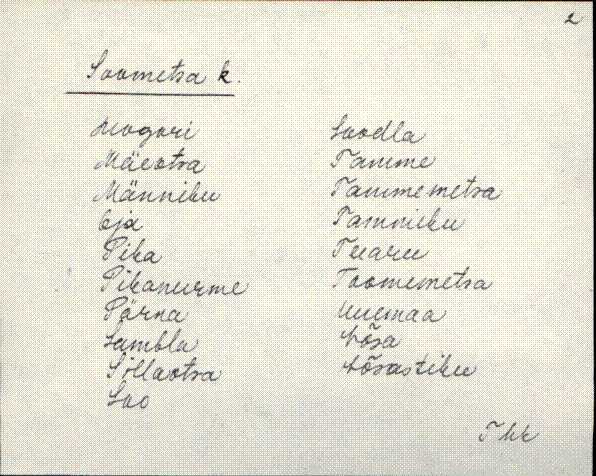 2
Soometsa k.
Mogori
Mäeotsa
Männiku
Oja
Pika
Pikanurme
Pärna
Sambla
Sillaotsa
Soo
Soodla
Tamme
Tammemetsa
Tamniku
Tuaru
Toomemetsa
Uuemaa
Võsa
Võsastiku